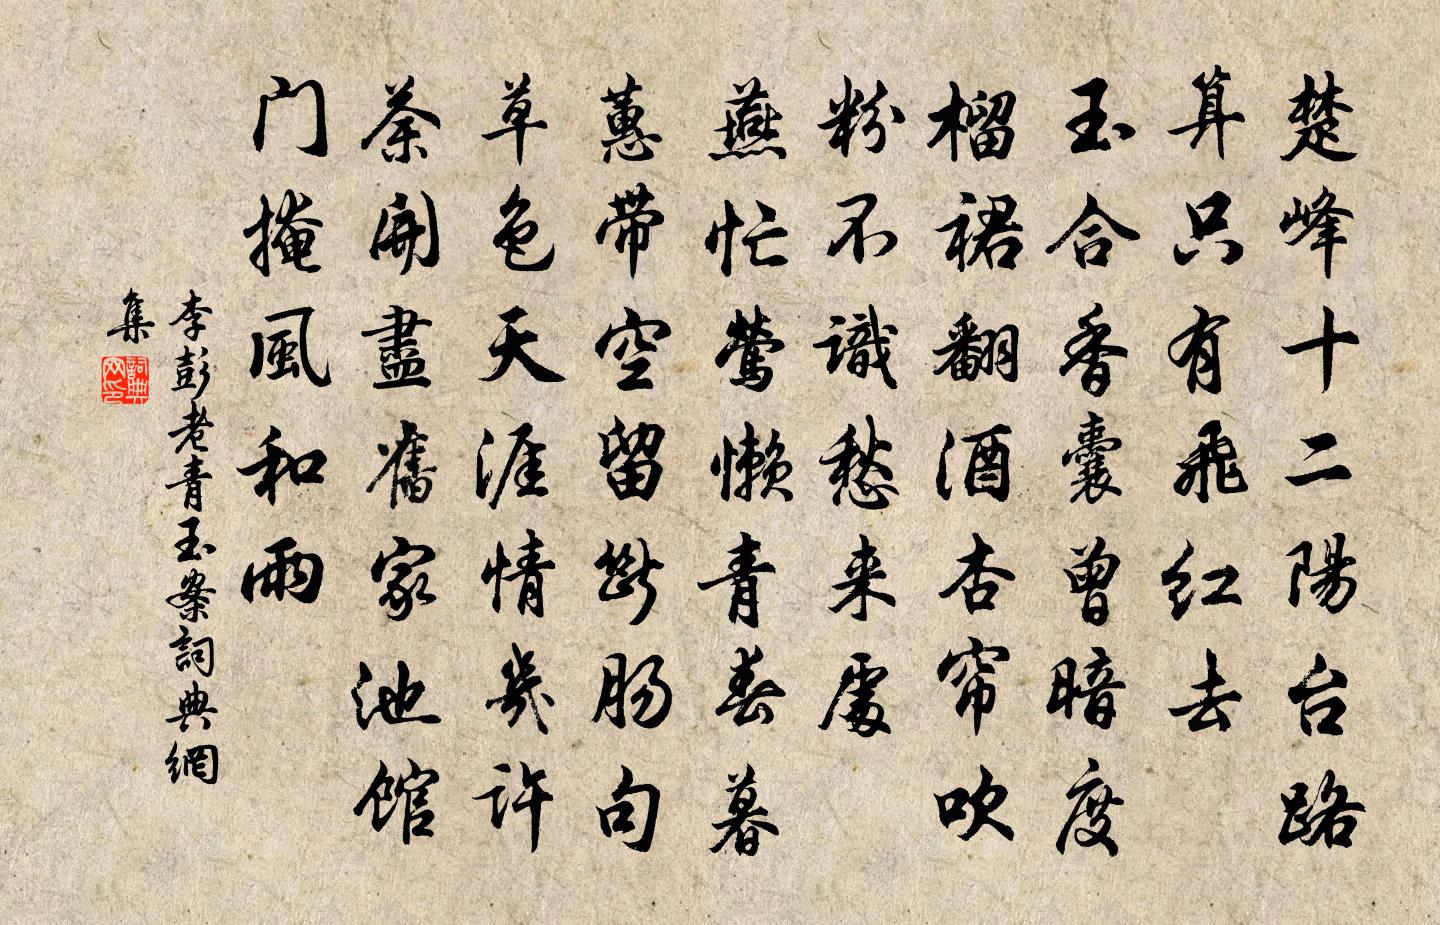 楚峰十二陽台路
算只有飛红去
玉合香囊曾暗度
榴裙翻酒
杏帘吹
粉不識愁来處
燕忙鶯懒青春暮
蕙带空留斷肠句
草色天涯情幾许
茶開盡舊家池馆
门掩風和雨
李彭老青玉案詞典網
集
詞典网印